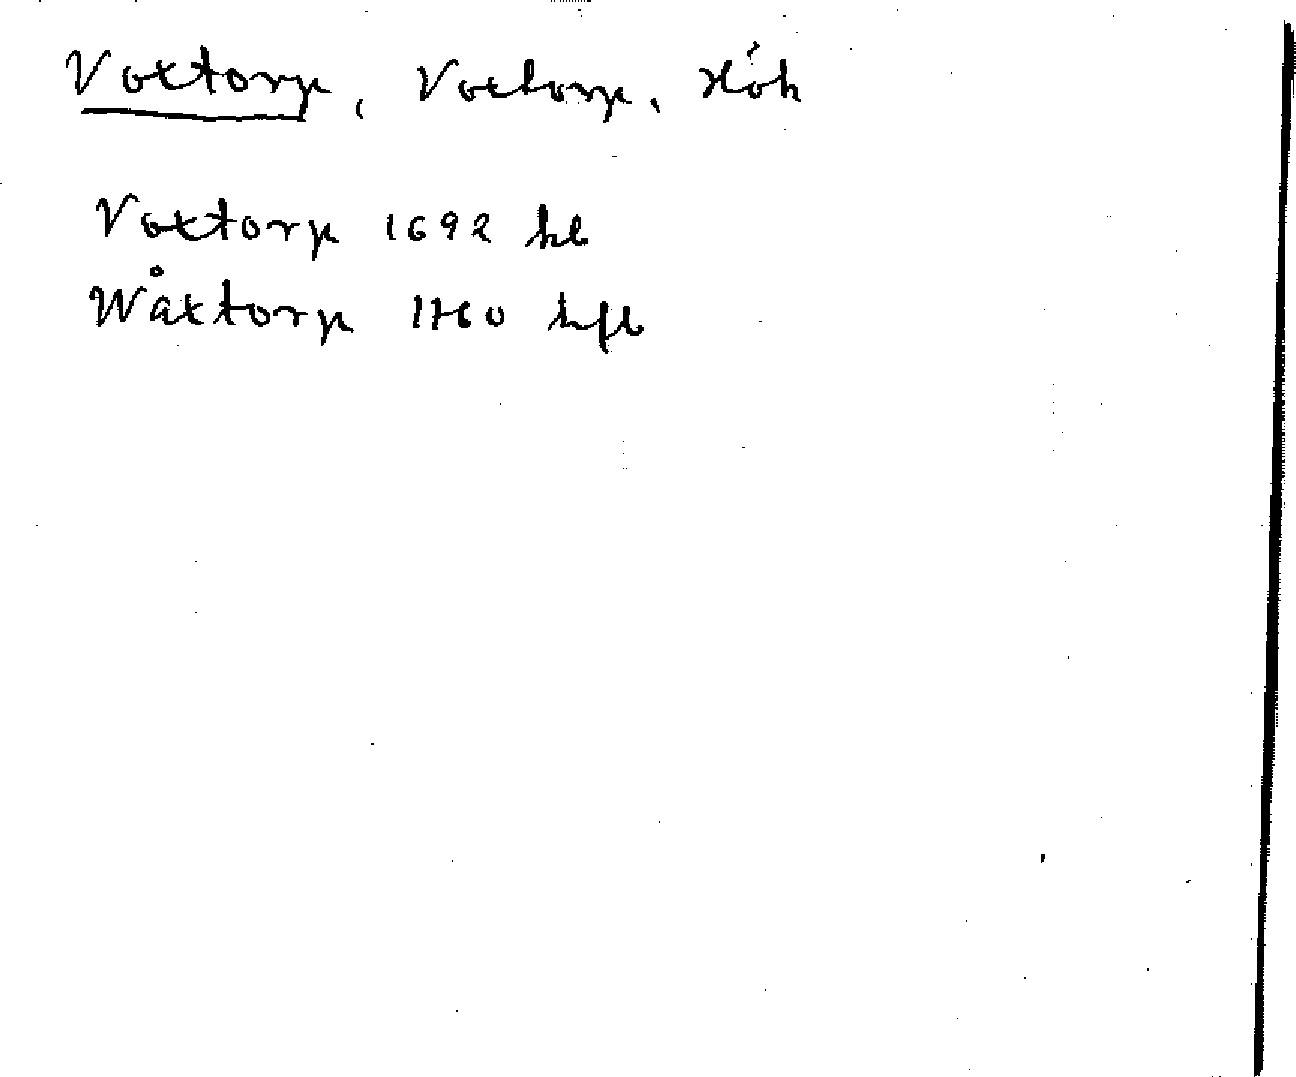 Voxtorp, Voxtorp, Höh
Voxtorp 1692 hb
Wåxtorp 1760 hfb